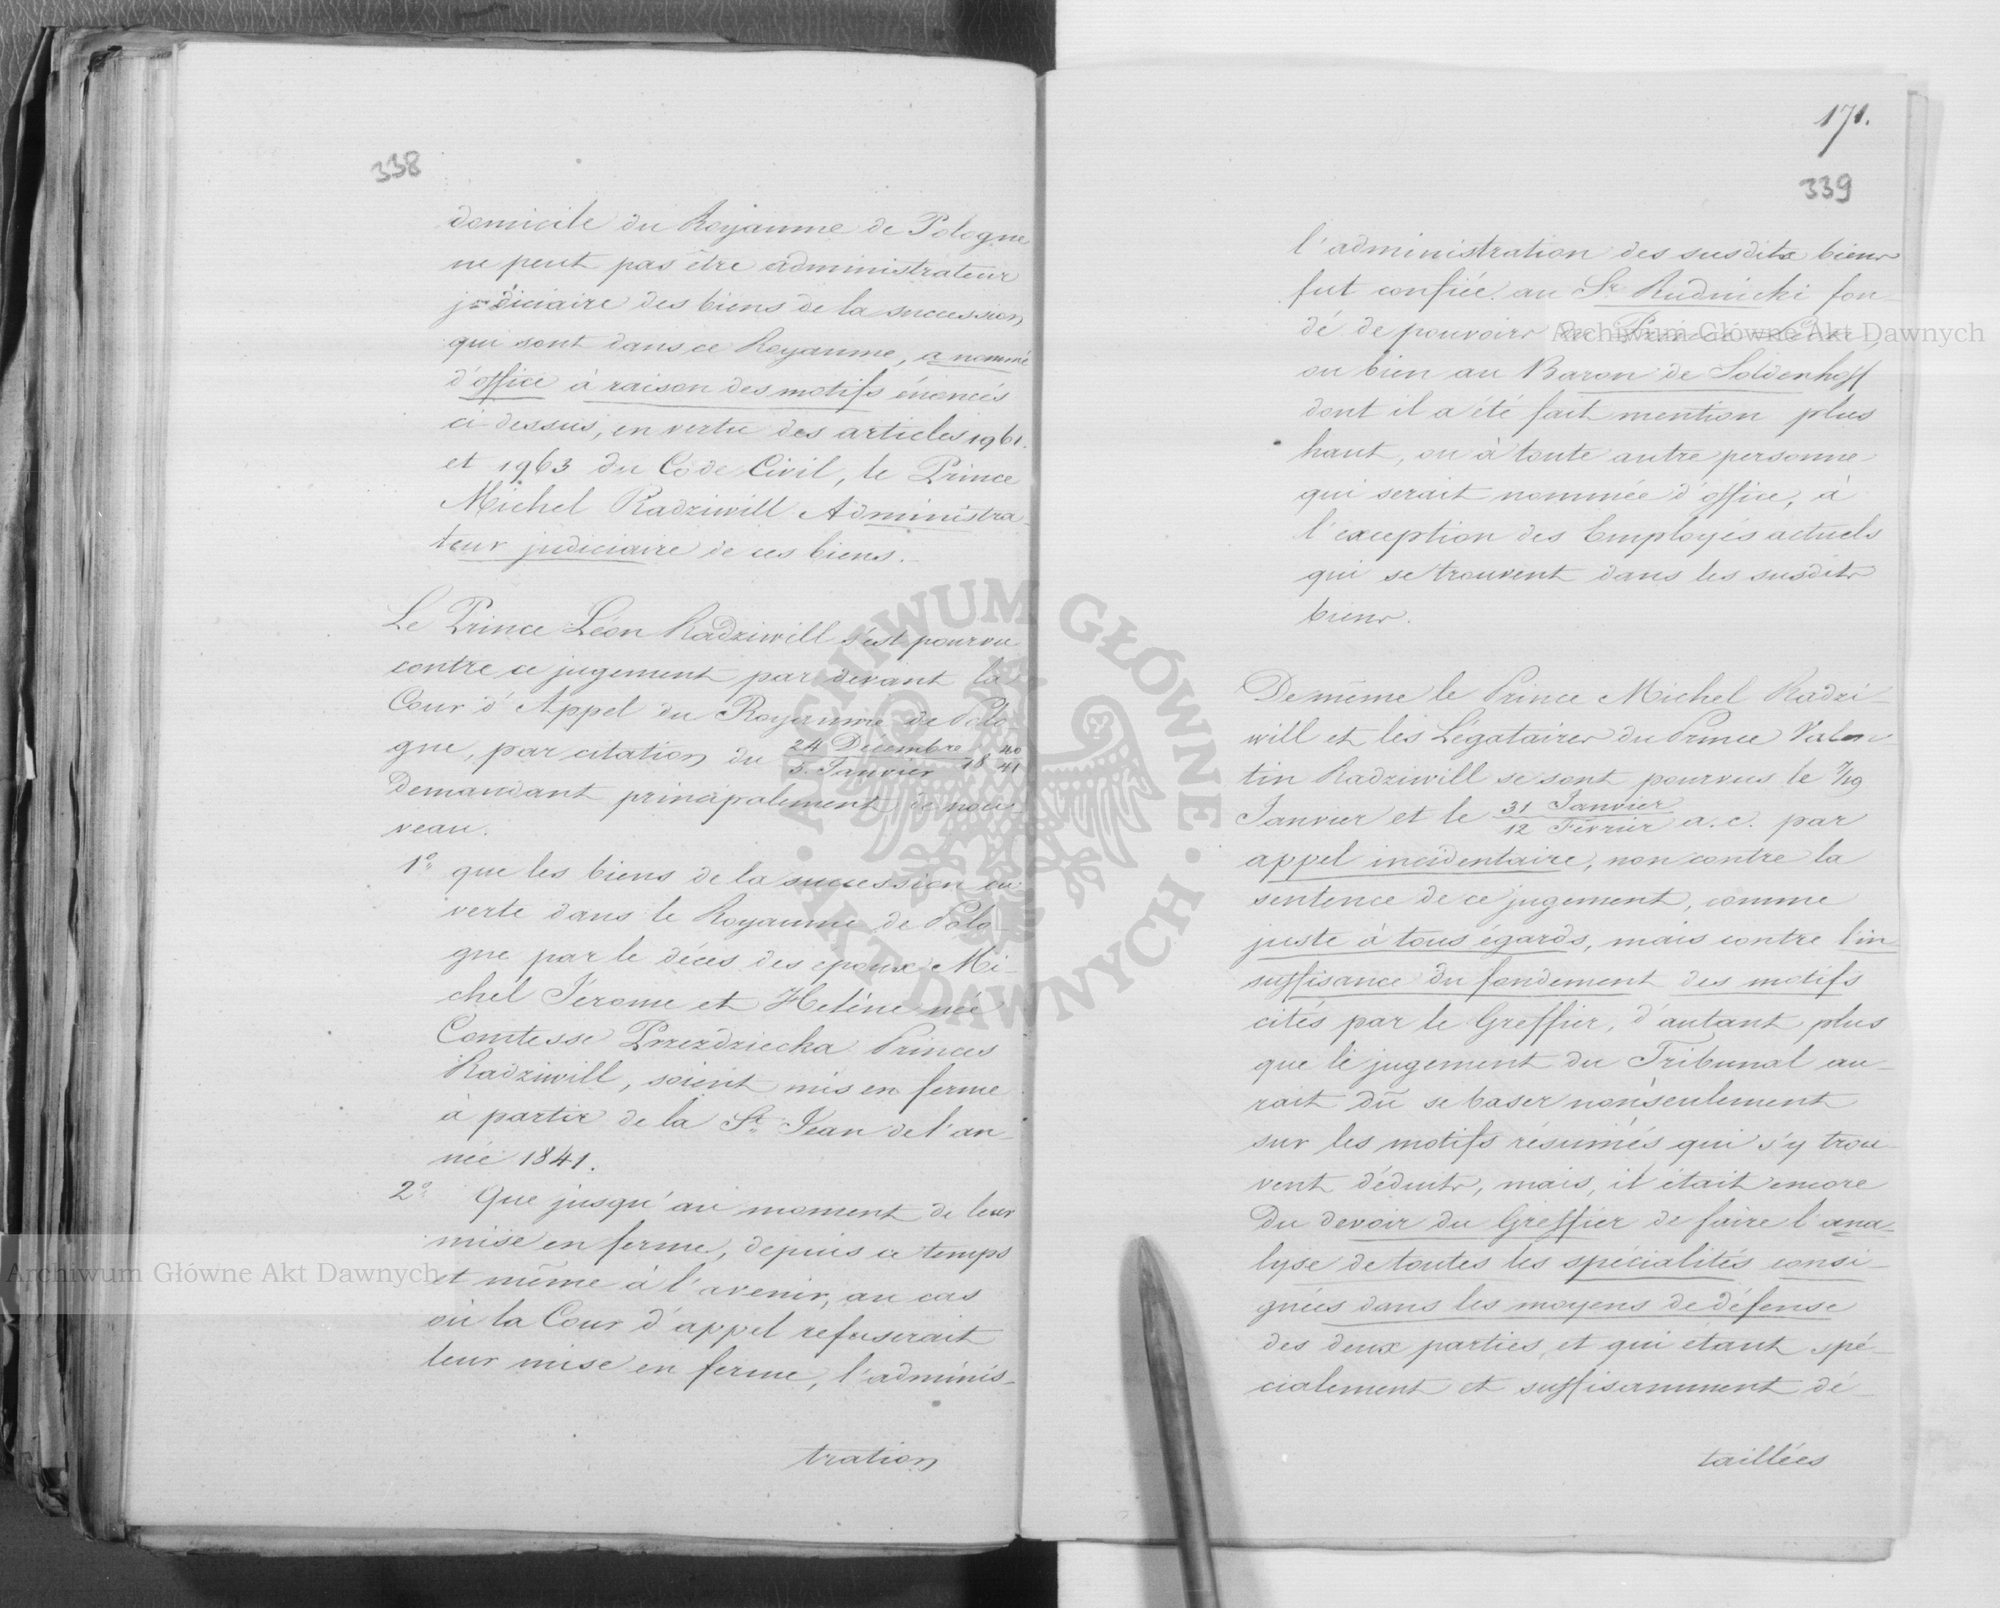 338
domicile du Royaume de Pologne
ne peut pas être administrateur
judiciaire des biens de la succession
qui sont dans ce Royaume, a nommé
d'office à raison des motifs énoncés
ci dessus, en vertu des articles 1961.
et 1963 du Code Civil, le Prince
Michel Radziwill Administra-
teur judiciaire de ces biens.
Le Prince Léon Radziwill s'est pourvu
contre ce jugement par devant la
Cour d'Appel du Royaume de Polo-
gne, par citation du 24 Décembre/5. Janvier 18 40/41
Demandant principalement de nou-
veau.
1° que les biens de la succession ou
verte dans le Royaume de Polo-
gne par le décès des epoux Mi-
chel Jérome et Heléne née
Comtesse Przezdziecka Princes
Radziwill, soient mis en ferme
à partir de la St. Jean de l'an-
née 1841.
2° Que jusqu'au moment de leur
mise en ferme, depuis ce temps
et même à l'avenir, au cas
où la Cour d'appel refuserait
leur mise en ferme, l'adminis-
tration
171.
339
l'administration des susdits biens
fut confiée au Sr. Rudnicki fon-
dé de pouvoirs du Prince Léon,
ou bien au Baron de Soldenhoff
dont il a été fait mention plus
haut, ou à toute autre personne
qui serait nommée d'office, à
l'exception des Employés actuels
qui se trouvent dans les susdits
biens.
De même le Prince Michel Radzi-
will et les Légataires du Prince Valen-
tin Radziwill se sont pourvus le 7/19
Janvier et le 31 Janvier/12 Février a. c. par
appel incidentaire, non contre la
sentence de ce jugement, comme
juste à tous égards, mais contre l'in
suffisance du fondement des motifs
cités par le Greffier, d'autant plus
que le jugement du Tribunal au-
rait dû se baser nonseulement
sur les motifs résumés qui s'y trou-
vent déduits, mais, il était encore
Du devoir du Greffier de faire l'ana-
lyse de toutes les spécialités consi-
gnées dans les moyens de défense
des deux parties, et qui etant spé-
cialement et suffisamment dé-
taillées
Archiwum Główne Akt Dawnych
Archiwum Główne Akt Dawnych
ARCHIWUM GŁÓWNE · AKT DAWNYCH ·